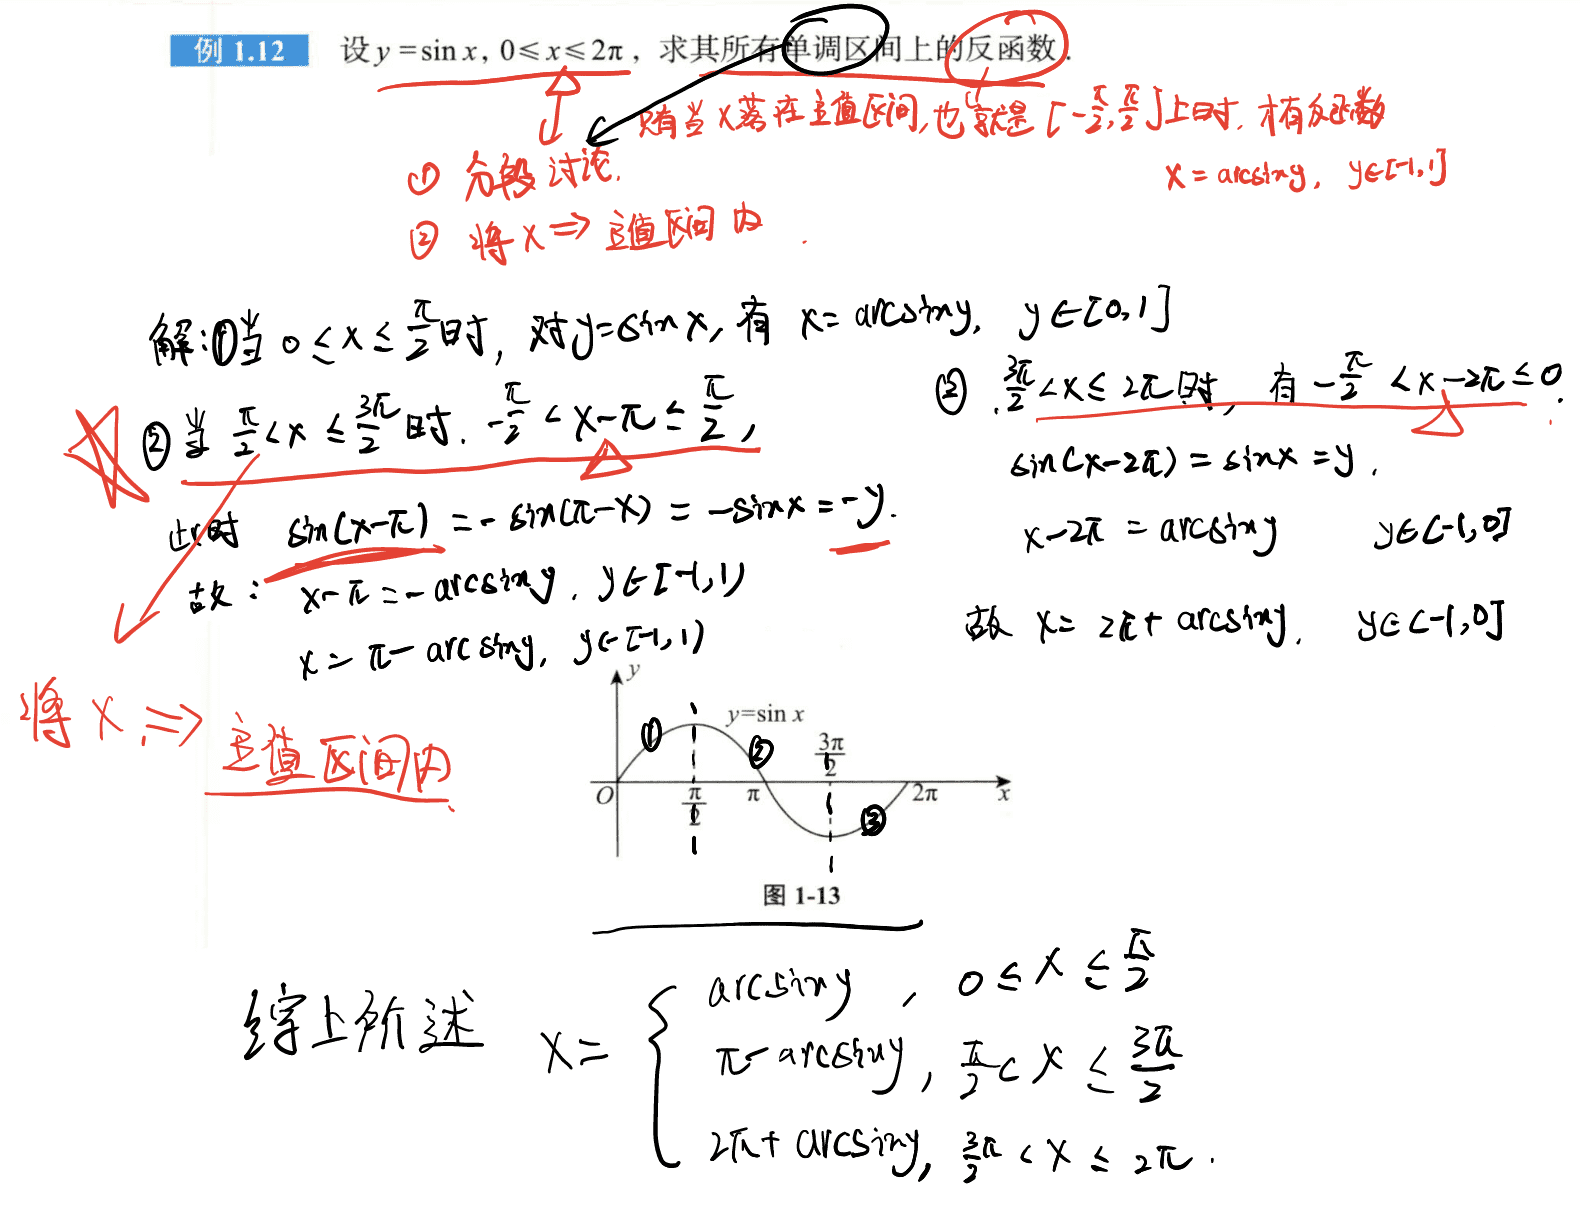 例 1.12 设 y = sin x, 0 ≤ x ≤ 2π, 求其所有单调区间上的反函数.
只有当 x 落在主值区间, 也就是 [-π/2, π/2] 上时, 才有反函数
x = arcsiny, y∈[-1,1]
① 分段讨论.
② 将 x ⇒ 主值区间内.
解: ①当 0 ≤ x ≤ π/2 时, 对 y=sinx, 有 x = arcsiny, y∈[0,1]
② 当 π/2 < x ≤ 3π/2 时. -π/2 < x-π ≤ π/2,
此时 sin(x-π) = -sin(π-x) = -sinx = -y.
故: x-π = -arcsiny, y∈[-1,1)
x = π - arcsiny, y∈[-1,1)
将 x ⇒ 主值区间内
3π/2 < x ≤ 2π 时, 有 -π/2 < x-2π ≤ 0.
sin(x-2π) = sinx = y.
x-2π = arcsiny y∈(-1,0]
故 x = 2π + arcsiny, y∈(-1,0]
y
y=sin x
① ② ③
3π/2
O π/2 π 2π x
图 1-13
综上所述 x = {
arcsiny, 0 ≤ x ≤ π/2
π - arcsiny, π/2 < x ≤ 3π/2
2π + arcsiny, 3π/2 < x ≤ 2π.